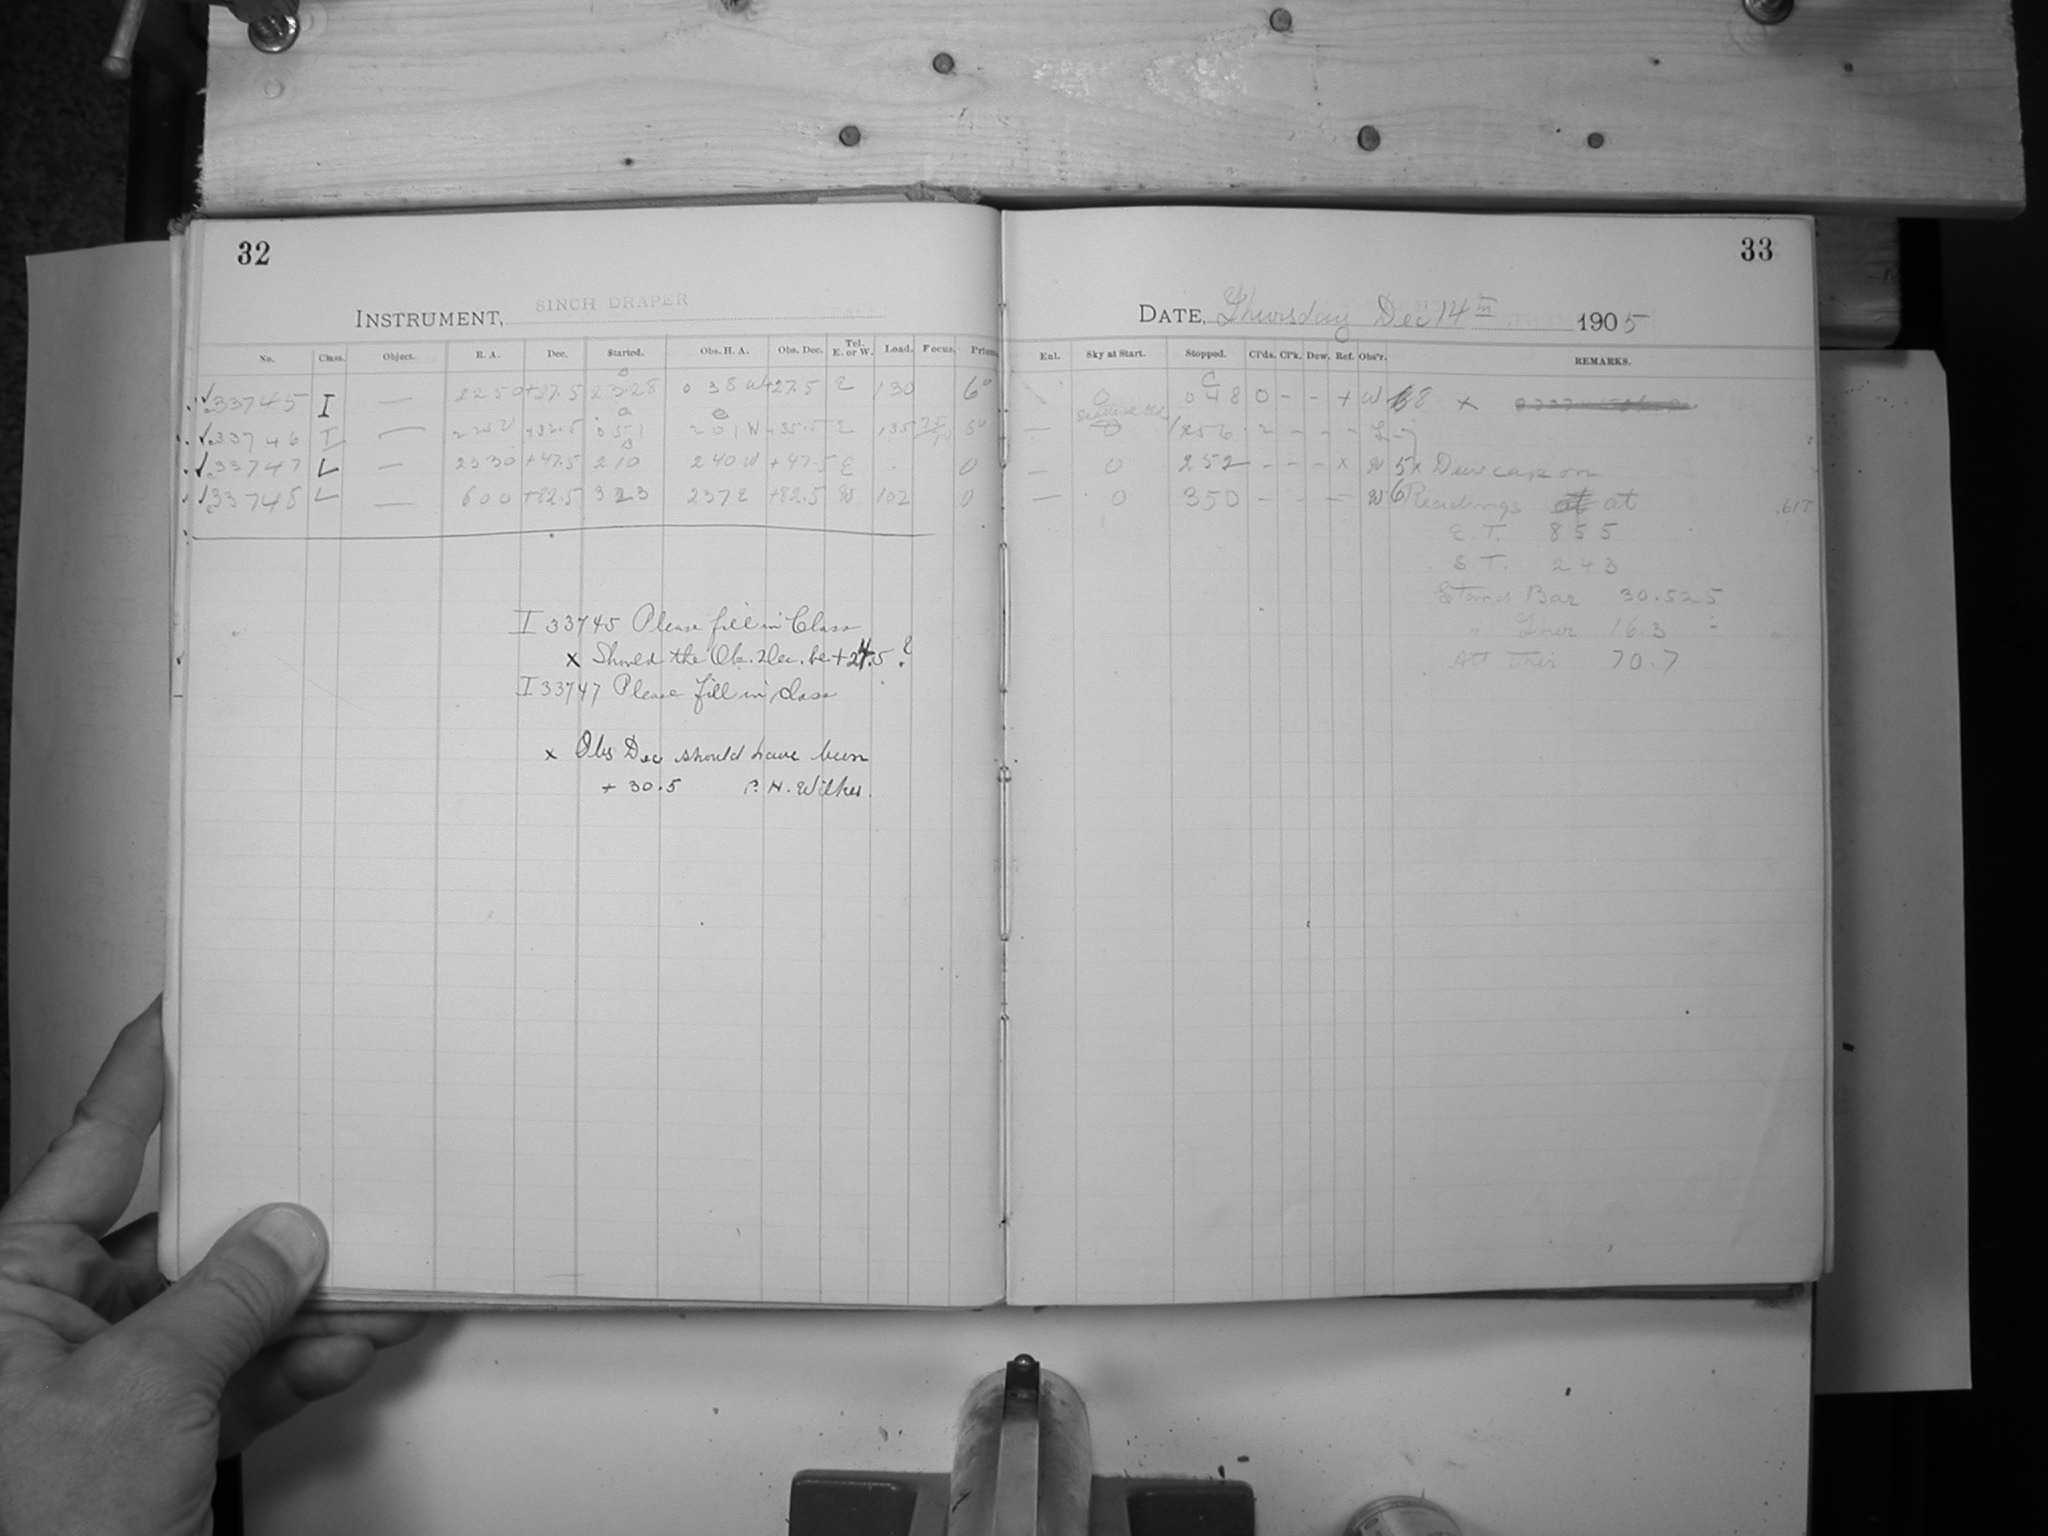 32
INSTRUMENT, 8INCH DRAPER
No. Class. Object. R. A. Dec. Started. Obs. H. A. Obs. Dec. Tel. E. or W. Load. Focus. Prism.
33745 I — 2250 +27.5 2328 0 38 W +27.5 E 130 6°
33746 I — +32.5 051 201 W +35.5 E 135
33747 L — 2330 +47.5 210 240 W +47.5 E 0
33748 L — 600 +82.5 323 237 E +82.5 W 102 0
I 33745 Please fill in Class
x Should the Ob. Dec. be +24.5 ?
I 33747 Please fill in class
x Obs Dec should have been
+ 30.5 P. H. Wilkes.
33
DATE, Thursday Dec 14th 1905
Enl. Sky at Start. Stopped. Cl'ds. Cl'k. Dew. Ref. Obs'r. REMARKS.
0 048 0 - - + W x
— 0 156 2 - - - L
— 0 252 - - - x W 5 x Dewcap on
— 0 350 - - - — W 6 Readings at at
E. T. 855
S. T. 243
Stand Bar 30.525
" Ther 16.3
Att Ther 70.7